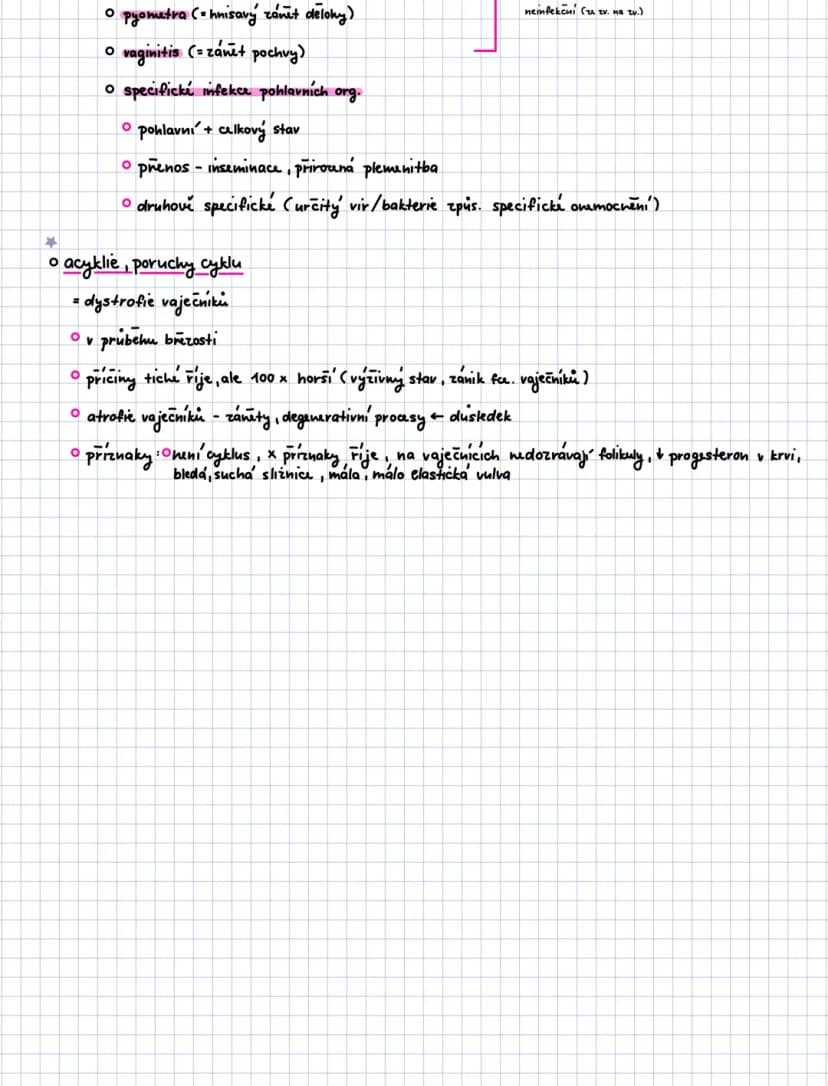 pyometra (= hnisavý zánět dělohy)
neinfekční (ze zv. na zv.)
vaginitis (= zánět pochvy)
specifické infekce pohlavních org.
pohlavní + celkový stav
přenos - inseminace, přirozená plemenitba
druhově specifické (určitý vir/bakterie způs. specifické onemocnění)
acyklie, poruchy cyklu
= dystrofie vaječníků
v průběhu březosti
příčiny tiché říje, ale 100 x horší (výživný stav, zánik fce. vaječníků)
atrofie vaječníků - záněty, degenerativní procesy ← důsledek
příznaky: není cyklus, x příznaky říje, na vaječnících nedozrávají folikuly, ↓ progesteron v krvi,
bledá, suchá sliznice, malá, málo elastická vulva